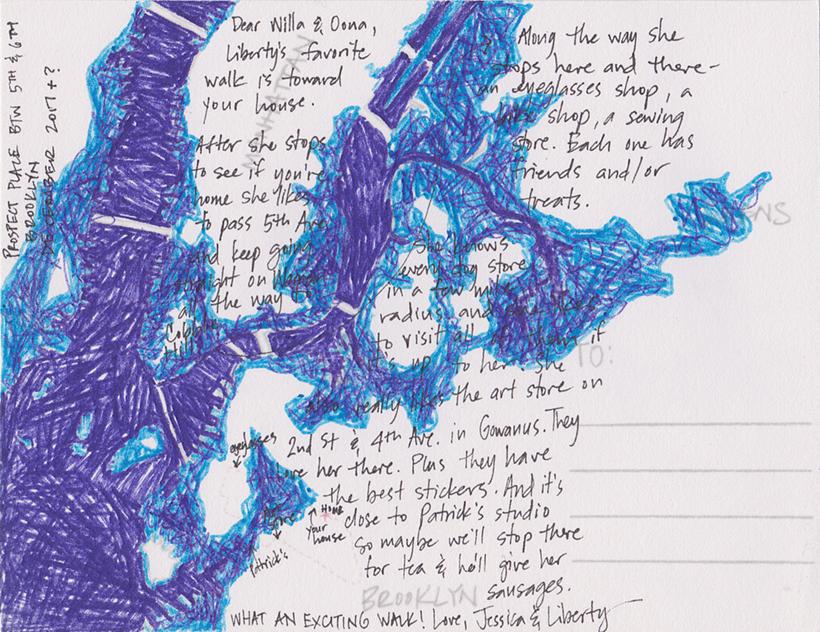 PROSPECT PLACE BTW 5TH & 6TH
BROOKLYN
DECEMBER 2017 + ?
Dear Willa & Oona,
Liberty's favorite
walk is toward
your house.
After she stops
to see if you're
home she likes
to pass 5th Ave
and keep going
straight on
all the way to
Cobble
Hill
MANHATTAN
Along the way she
stops here and there-
an eyeglasses shop, a
shop, a sewing
store. Each one has
friends and/or
treats.
QUEENS
She knows
every dog store
in a few mile
radius and she likes
to visit all of them if
it's up to her. She
also really likes the art store on
2nd St & 4th Ave. in Gowanus. They
love her there. Plus they have
the best stickers. And it's
close to Patrick's studio
so maybe we'll stop there
for tea & he'll give her
sausages.
TO:
eyeglasses
Home
your
house
Patrick's
BROOKLYN
WHAT AN EXCITING WALK! Love, Jessica & Liberty